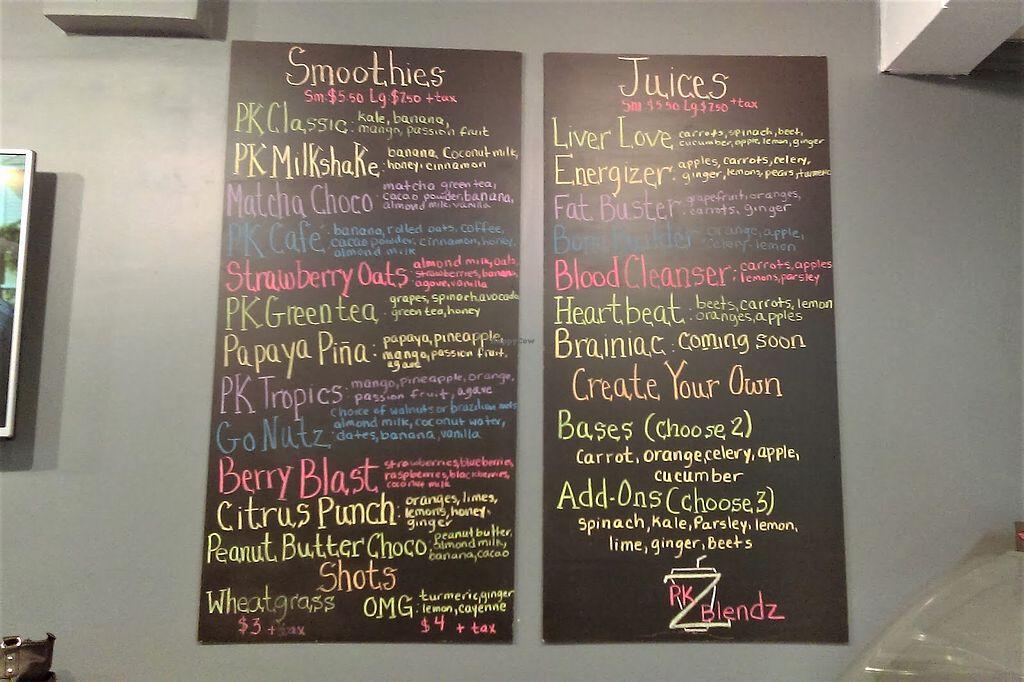 Smoothies
Sm $5.50 Lg $7.50 + tax
PK Classic: kale, banana,
mango, passion fruit
PK Milkshake: banana, Coconut milk,
honey, cinnamon
Matcha Choco: matcha green tea,
cacao powder, banana,
almond milk, vanilla
PK Cafe: banana, rolled oats, coffee,
cacao powder, cinnamon, honey,
almond milk
Strawberry Oats: almond milk, oats,
strawberries, banana,
agave, vanilla
PK Green tea: grapes, spinach, avocado
green tea, honey
Papaya Piña: papaya, pineapple,
mango, passion fruit,
agave
PK Tropics: mango, pineapple, orange,
passion fruit, agave
Go Nutz: Choice of walnuts or brazilian nuts
almond milk, coconut water,
dates, banana, vanilla
Berry Blast: strawberries, blueberries,
raspberries, blackberries,
coconut milk
Citrus Punch: oranges, limes,
lemons, honey,
ginger
Peanut Butter Choco: peanut butter,
almond milk,
banana, cacao
Shots
Wheatgrass
$3 + tax
OMG: turmeric, ginger
lemon, cayenne
$4 + tax
Juices
Sm $5.50 Lg $7.50 + tax
Liver Love: carrots, spinach, beet,
cucumber, apple, lemon, ginger
Energizer: apples, carrots, celery,
ginger, lemons, pears, turmeric
Fat Buster: grapefruit, oranges,
carrots, ginger
Bone Builder: orange, apple,
celery, lemon
Blood Cleanser: carrots, apples
lemons, parsley
Heartbeat: beets, carrots, lemon
oranges, apples
Brainiac: Coming soon
Create Your Own
Bases (Choose 2)
Carrot, orange, celery, apple,
cucumber
Add-Ons (Choose 3)
Spinach, Kale, Parsley, lemon,
lime, ginger, Beets
PK
Blendz
HappyCow